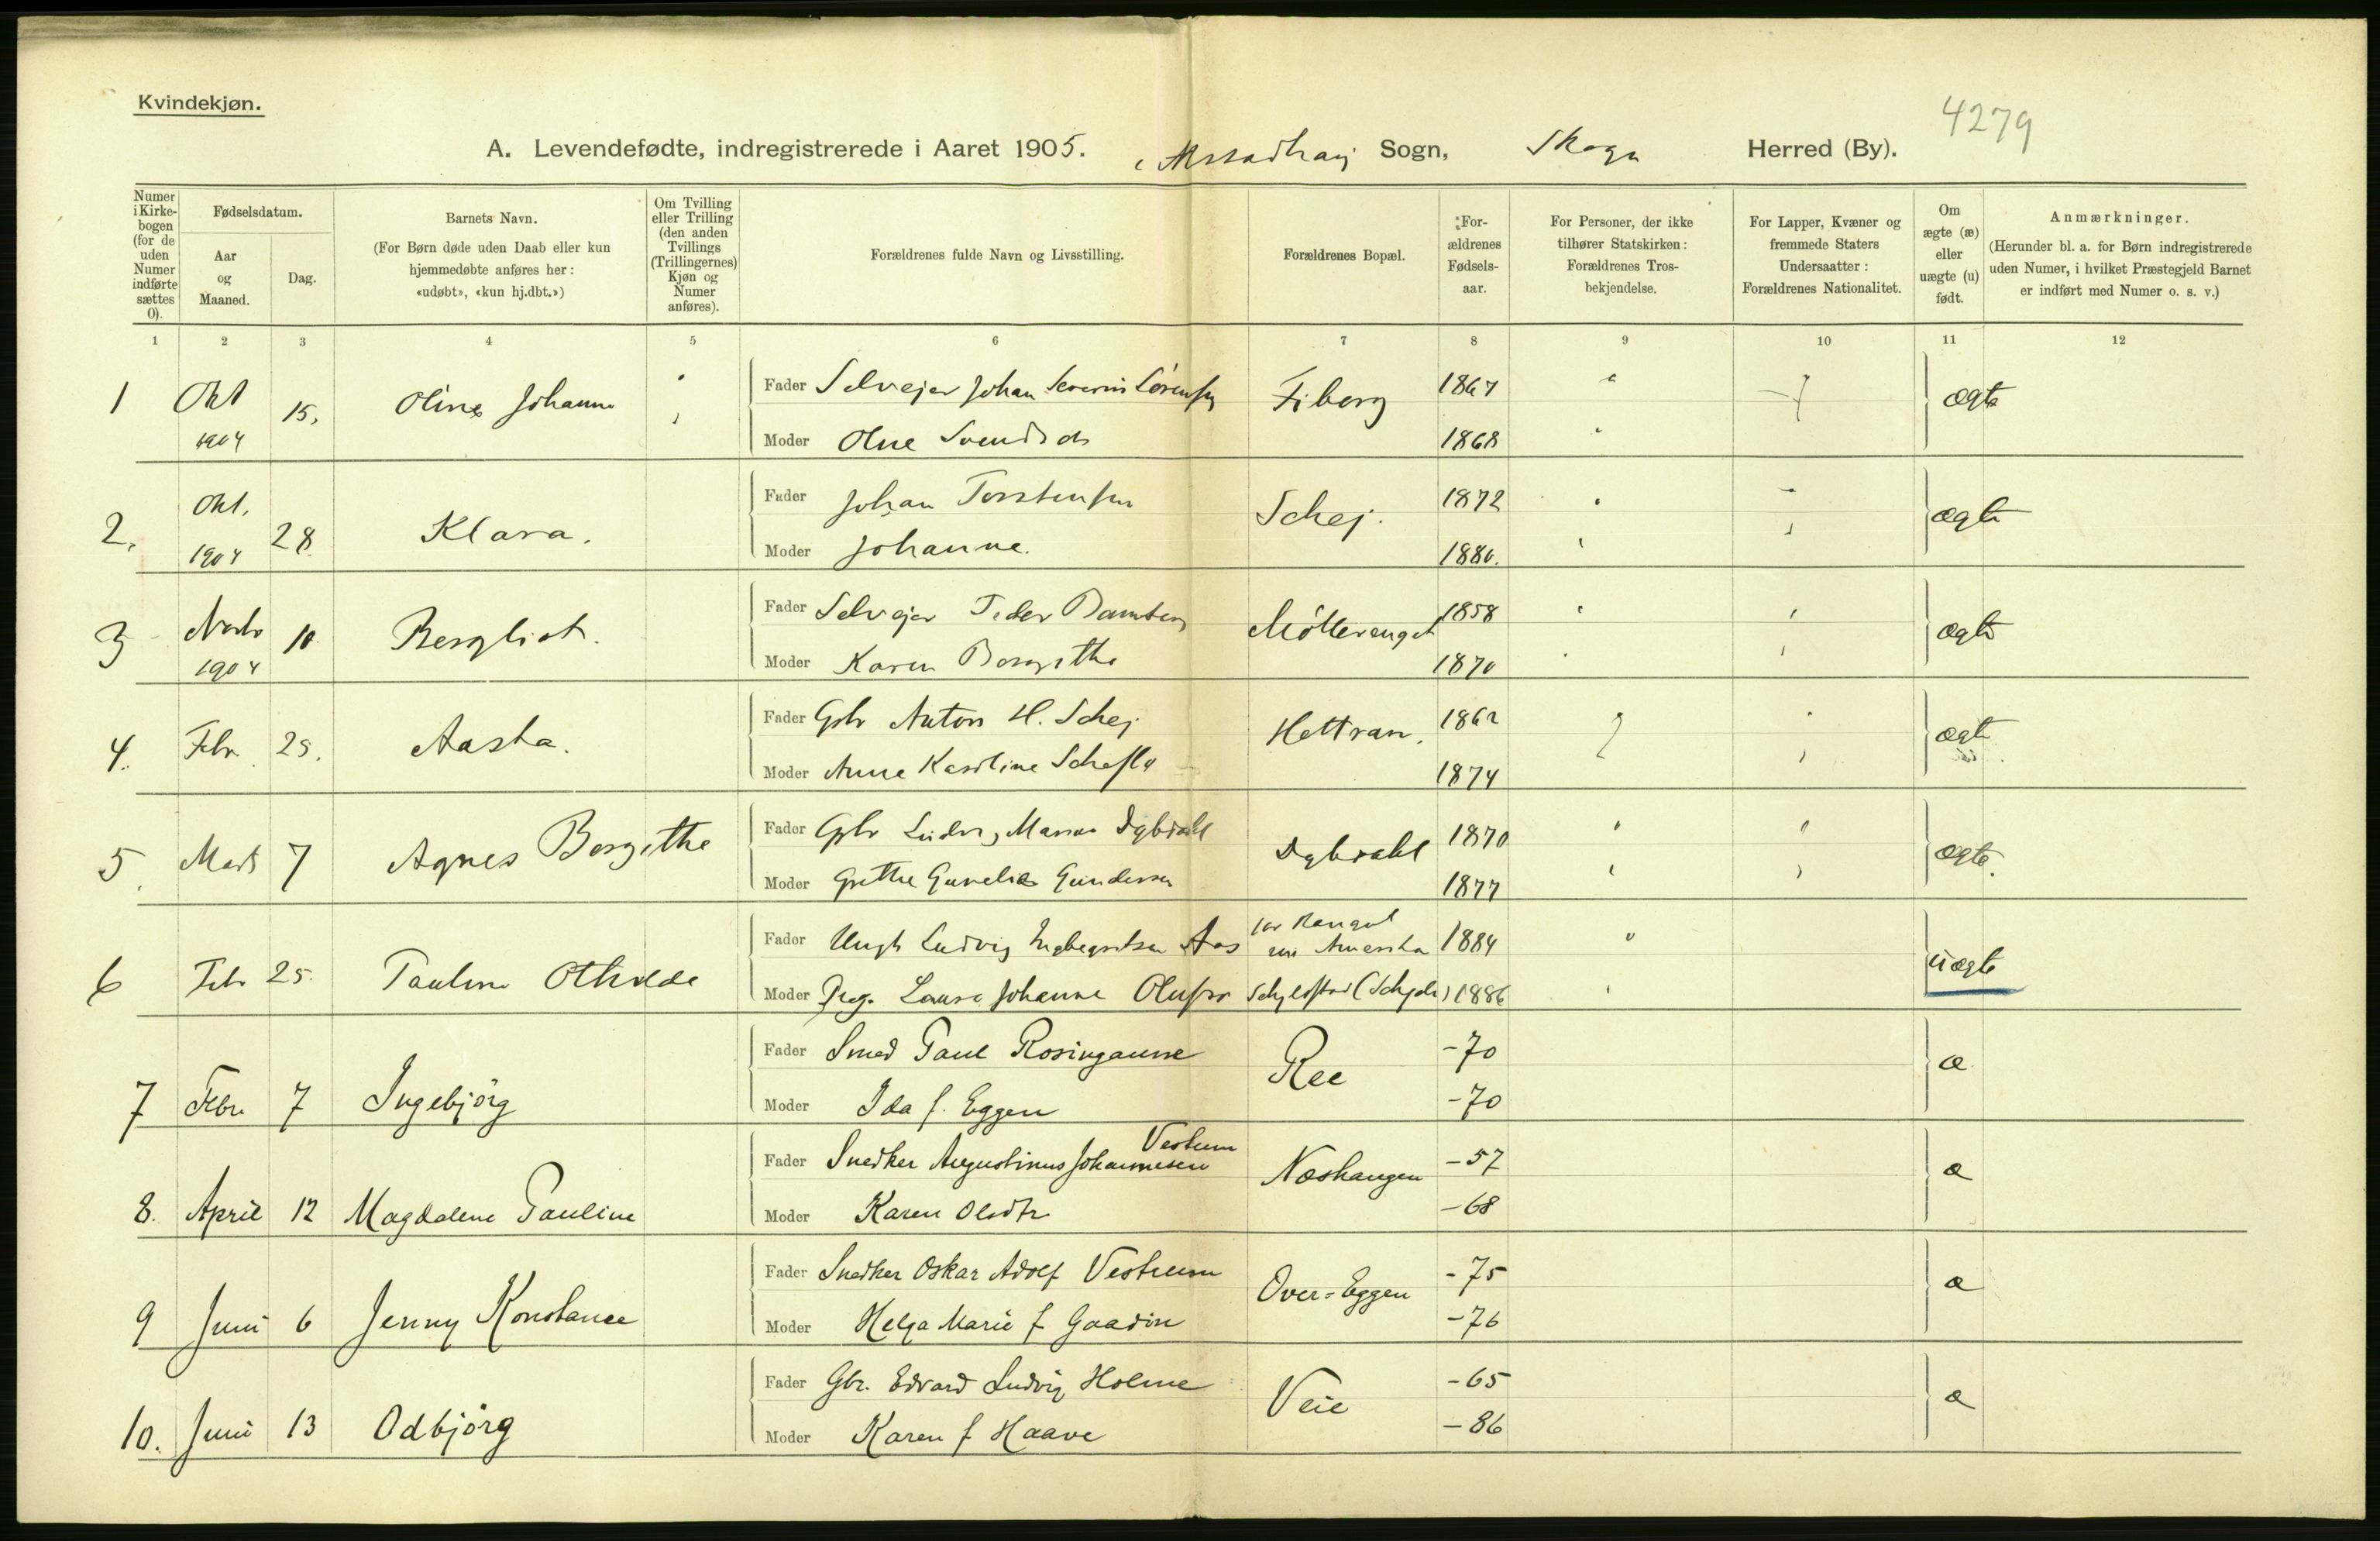 Kvindekjøn.
4279
A. Levendefødte, indregistrerede i Aaret 1905. Sogn, Skogn Herred (By).
Numer i Kirkebogen (for de uden Numer indførte sættes 0).
Fødselsdatum.
Aar og Maaned.
Dag.
Barnets Navn.
(For Børn døde uden Daab eller kun hjemmedøbte anføres her: «udøbt», «kun hj.dbt.»)
Om Tvilling eller Trilling (den anden Tvillings (Trillingernes) Kjøn og Numer anføres).
Forældrenes fulde Navn og Livsstilling.
Forældrenes Bopæl.
Forældrenes Fødselsaar.
For Personer, der ikke tilhører Statskirken: Forældrenes Trosbekjendelse.
For Lapper, Kvæner og fremmede Staters Undersaatter: Forældrenes Nationalitet.
Om ægte (æ) eller uægte (u) født.
Anmærkninger.
(Herunder bl. a. for Børn indregistrerede uden Numer, i hvilket Præstegjeld Barnet er indført med Numer o. s. v.)
1 2 3 4 5 6 7 8 9 10 11 12
1 Okt 1904 15. Oline Johanne Fader Selvejer Johan Severin Sørensen Fiborg 1867 ægte
Moder Oline 1868
2. Okt. 1904 28. Klara. Fader Johan Torstensen Schej. 1872 ægte
Moder Johanne. 1880.
3 Novbr 1904 10 Bergliot. Fader Selvejer Peder 1858 ægte
Moder Karen Bergitha 1870
4. Febr. 25. Aasta. Fader Gbr Anton H. Schej Hettran. 1862 ægte
Moder Anne Karoline 1874
5. Marts 7 Agnes Bergitha Fader Gbr Ludvig Dybdahl Dybdahl 1870 ægte.
Moder Grethe Gundersen 1877
6 Febr 25. Pauline Othilde Fader Ungk Ludvig Ingebrigtsen Aas Amerika 1884 uægte
Moder Pige Laura Johanne 1886
7 Febr. 7 Ingebjörg Fader Smed Paul Rosingaune Ree -70 æ
Moder Ida f. Eggen -70
8. April 12 Magdalene Pauline Fader Snedker Augustinus Johannesen Vestrum Næshaugen -57 æ
Moder Karen Olsdtr -68
9 Juni 6 Jenny Konstance Fader Snedker Oskar Adolf Vestrum Over-Eggen -75 æ
Moder Helga Marie f -76
10. Juni 13 Odbjörg Fader Gbr. Edvard Ludvig Holme Veie -65 æ
Moder Karen f Haave -86